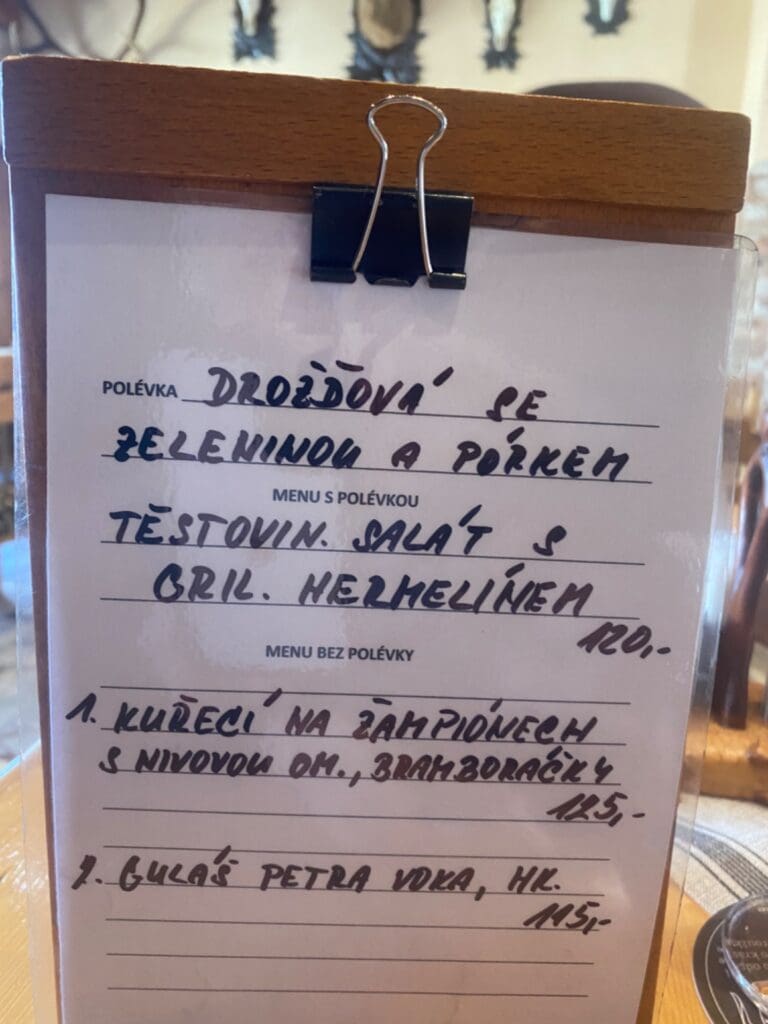 POLÉVKA DROŽĎOVÁ SE
ZELENINOU A PÓRKEM
MENU S POLÉVKOU
TĚSTOVIN. SALÁT S
GRIL. HERMELÍNEM
120,-
MENU BEZ POLÉVKY
1. KUŘECÍ NA ŽAMPIÓNECH
S NIVOVOU OM., BRAMBORAČKY
125,-
2. GULÁŠ PETRA VOKA, HK.
115,-